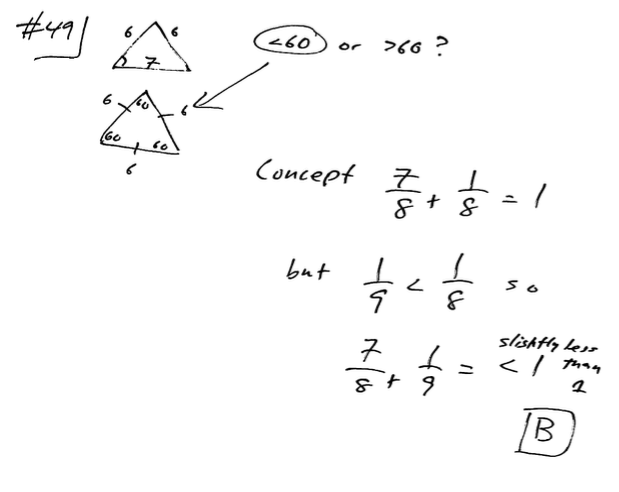 #49
6 6
7
<60 or >60 ?
6 60 6
60 60
6
Concept 7/8 + 1/8 = 1
but 1/9 < 1/8 so
7/8 + 1/9 = <1 slightly less than 1
B